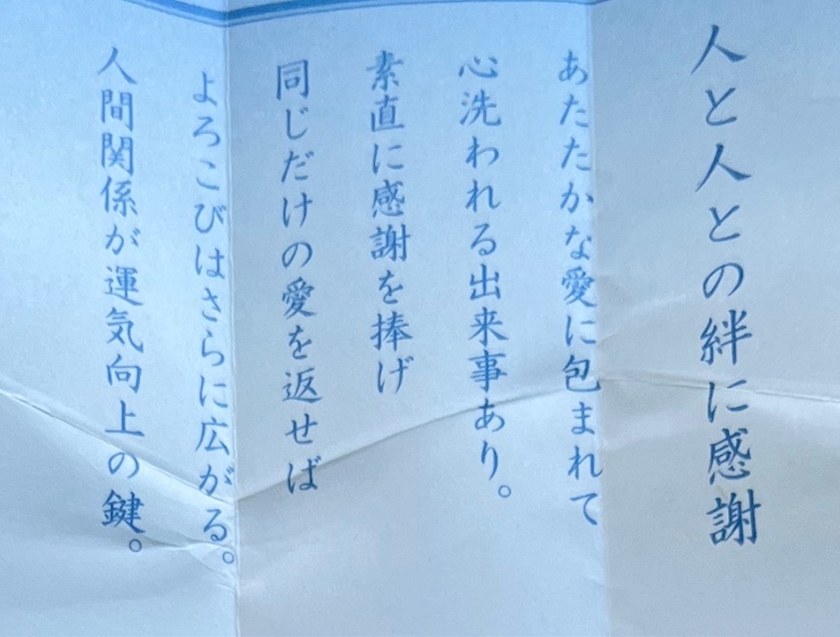 人と人との絆に感謝
あたたかな愛に包まれて
心洗われる出来事あり。
素直に感謝を捧げ
同じだけの愛を返せば
よろこびはさらに広がる。
人間関係が運気向上の鍵。